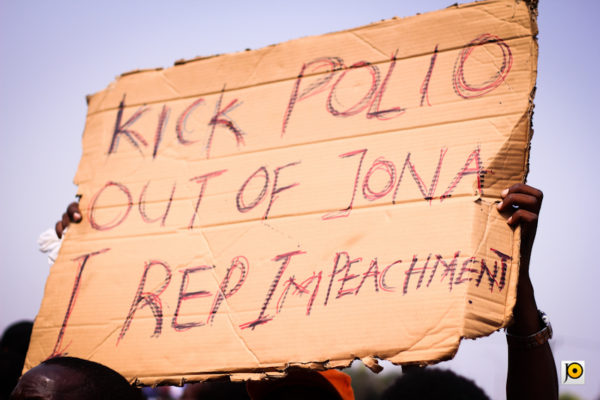 KICK POLIO
OUT OF JONA
I REP IMPEACHMENT